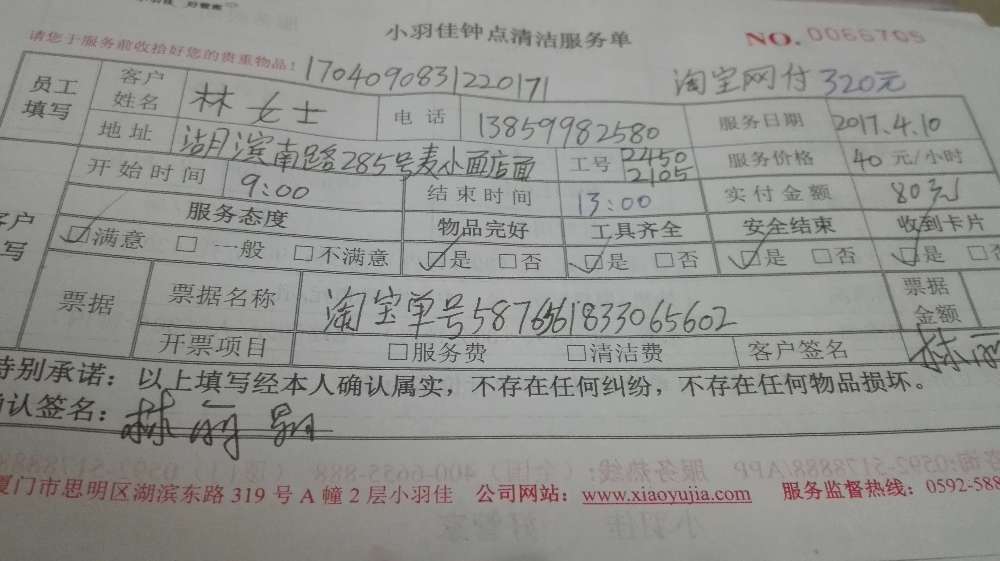 小羽佳钟点清洁服务单 NO. 0055705
请您于服务前收拾好您的贵重物品! 1704090831220171 淘宝网付320元
员工填写 客户姓名 林女士 电话 13859982580 服务日期 2017.4.10
地址 湖滨南路285号麦小面店面 工号 2450 2105 服务价格 40元/小时
开始时间 9:00 结束时间 13:00 实付金额 80元
服务态度 物品完好 工具齐全 安全结束 收到卡片
☑满意 □一般 □不满意 ☑是 □否 ☑是 □否 ☑是 □否 ☑是
票据 票据名称 淘宝单号 票据金额
开票项目 □服务费 □清洁费 客户签名
特别承诺：以上填写经本人确认属实，不存在任何纠纷，不存在任何物品损坏。
确认签名：
厦门市思明区湖滨东路 319 号 A 幢 2 层小羽佳 公司网站：www.xiaoyujia.com 服务监督热线：0592-588